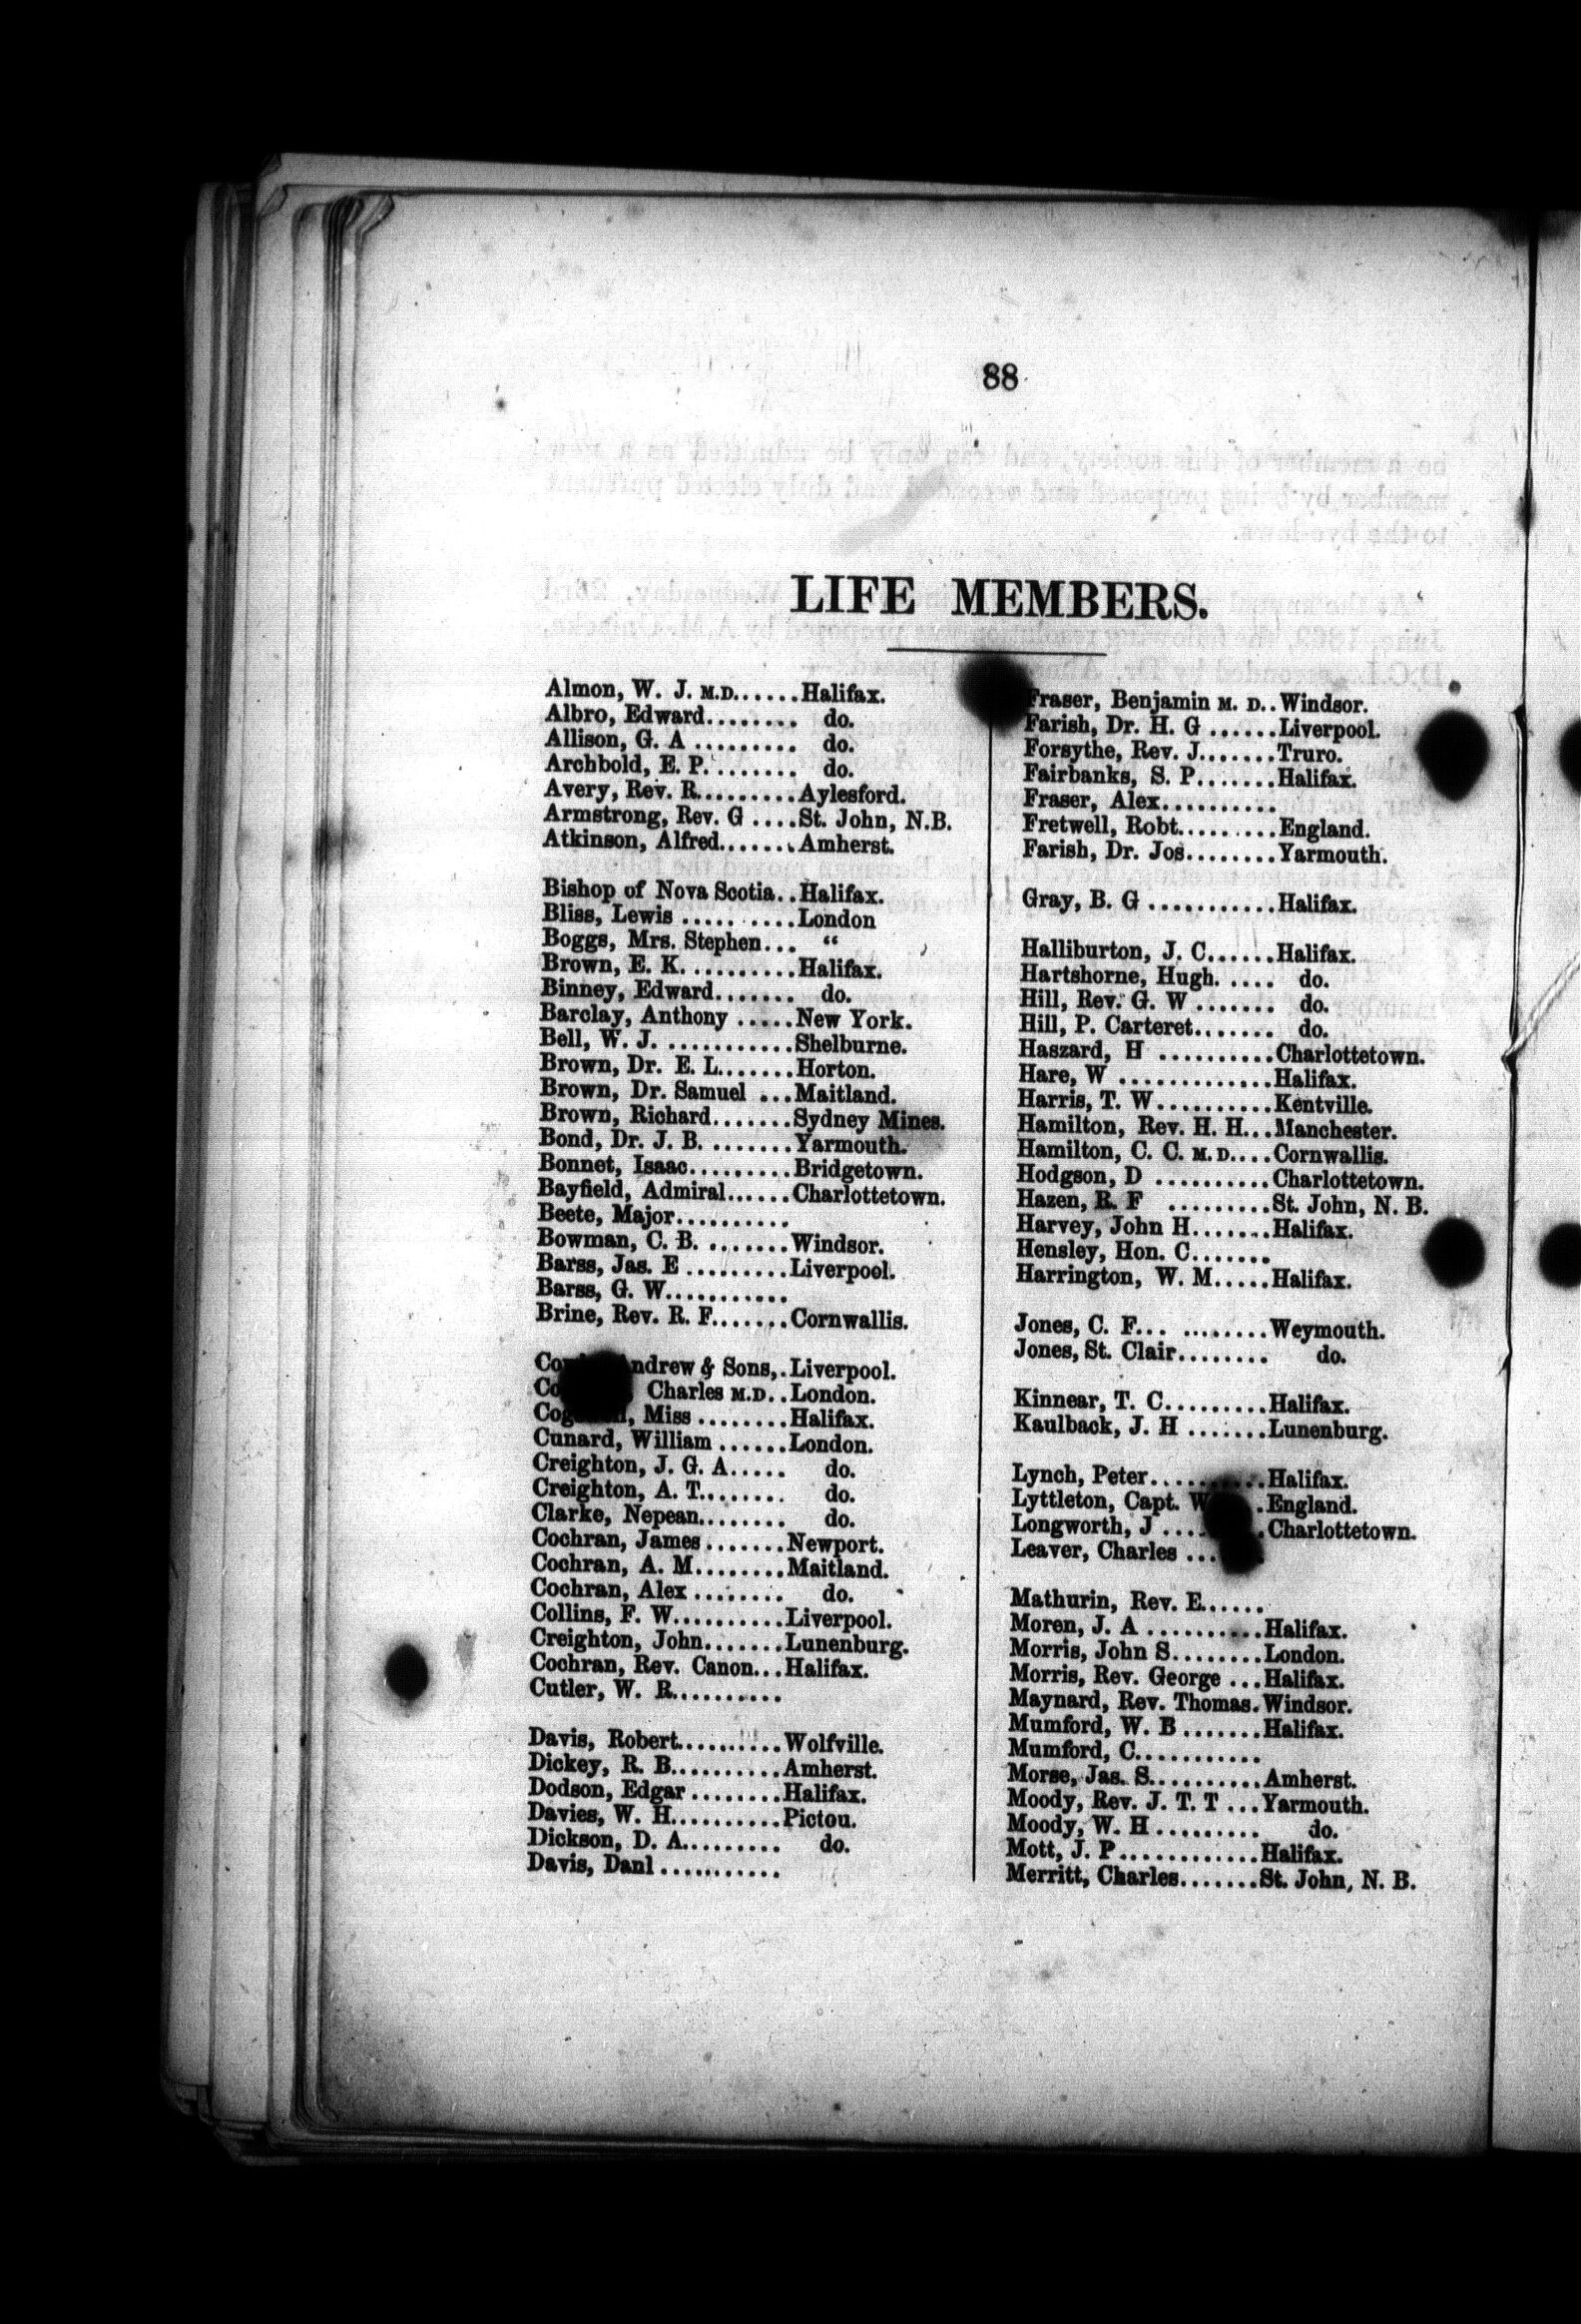 88
LIFE MEMBERS.
Almon, W. J. M.D......Halifax.
Albro, Edward........ do.
Allison, G. A ......... do.
Archbold, E. P........ do.
Avery, Rev. R.........Aylesford.
Armstrong, Rev. G ....St. John, N.B.
Atkinson, Alfred.......Amherst.
Bishop of Nova Scotia..Halifax.
Bliss, Lewis .... .....London
Boggs, Mrs. Stephen... “
Brown, E. K. .........Halifax.
Binney, Edward....... do.
Barclay, Anthony .....New York.
Bell, W. J. ...........Shelburne.
Brown, Dr. E. L.......Horton.
Brown, Dr. Samuel ...Maitland.
Brown, Richard.......Sydney Mines.
Bond, Dr. J. B. .......Yarmouth.
Bonnet, Isaac.........Bridgetown.
Bayfield, Admiral......Charlottetown.
Beete, Major..........
Bowman, C. B. .......Windsor.
Barss, Jas. E .........Liverpool.
Barss, G. W...........
Brine, Rev. R. F.......Cornwallis.
Andrew & Sons,.Liverpool.
Charles M.D..London.
Miss ........Halifax.
Cunard, William ......London.
Creighton, J. G. A..... do.
Creighton, A. T........ do.
Clarke, Nepean........ do.
Cochran, James.......Newport.
Cochran, A. M........Maitland.
Cochran, Alex ........ do.
Collins, F. W..........Liverpool.
Creighton, John.......Lunenburg.
Cochran, Rev. Canon...Halifax.
Cutler, W. R..........
Davis, Robert..........Wolfville.
Dickey, R. B..........Amherst.
Dodson, Edgar ........Halifax.
Davies, W. H..........Pictou.
Dickson, D. A......... do.
Davis, Danl ...........
Fraser, Benjamin M. D..Windsor.
Farish, Dr. H. G ......Liverpool.
Forsythe, Rev. J.......Truro.
Fairbanks, S. P.......Halifax.
Fraser, Alex..........
Fretwell, Robt.........England.
Farish, Dr. Jos........Yarmouth.
Gray, B. G ...........Halifax.
Halliburton, J. C......Halifax.
Hartshorne, Hugh. .... do.
Hill, Rev. G. W ....... do.
Hill, P. Carteret....... do.
Haszard, H ..........Charlottetown.
Hare, W .............Halifax.
Harris, T. W..........Kentville.
Hamilton, Rev. H. H...Manchester.
Hamilton, C. C. M.D....Cornwallis.
Hodgson, D ..........Charlottetown.
Hazen, R. F .........St. John, N. B.
Harvey, John H.......Halifax.
Hensley, Hon. C.......
Harrington, W. M.....Halifax.
Jones, C. F... ........Weymouth.
Jones, St. Clair........ do.
Kinnear, T. C.........Halifax.
Kaulback, J. H .......Lunenburg.
Lynch, Peter..........Halifax.
Lyttleton, Capt. W .England.
Longworth, J .... .Charlottetown.
Leaver, Charles ...
Mathurin, Rev. E......
Moren, J. A ..........Halifax.
Morris, John S........London.
Morris, Rev. George ...Halifax.
Maynard, Rev. Thomas.Windsor.
Mumford, W. B .......Halifax.
Mumford, C...........
Morse, Jas. S..........Amherst.
Moody, Rev. J. T. T ...Yarmouth.
Moody, W. H ......... do.
Mott, J. P............Halifax.
Merritt, Charles.......St. John, N. B.